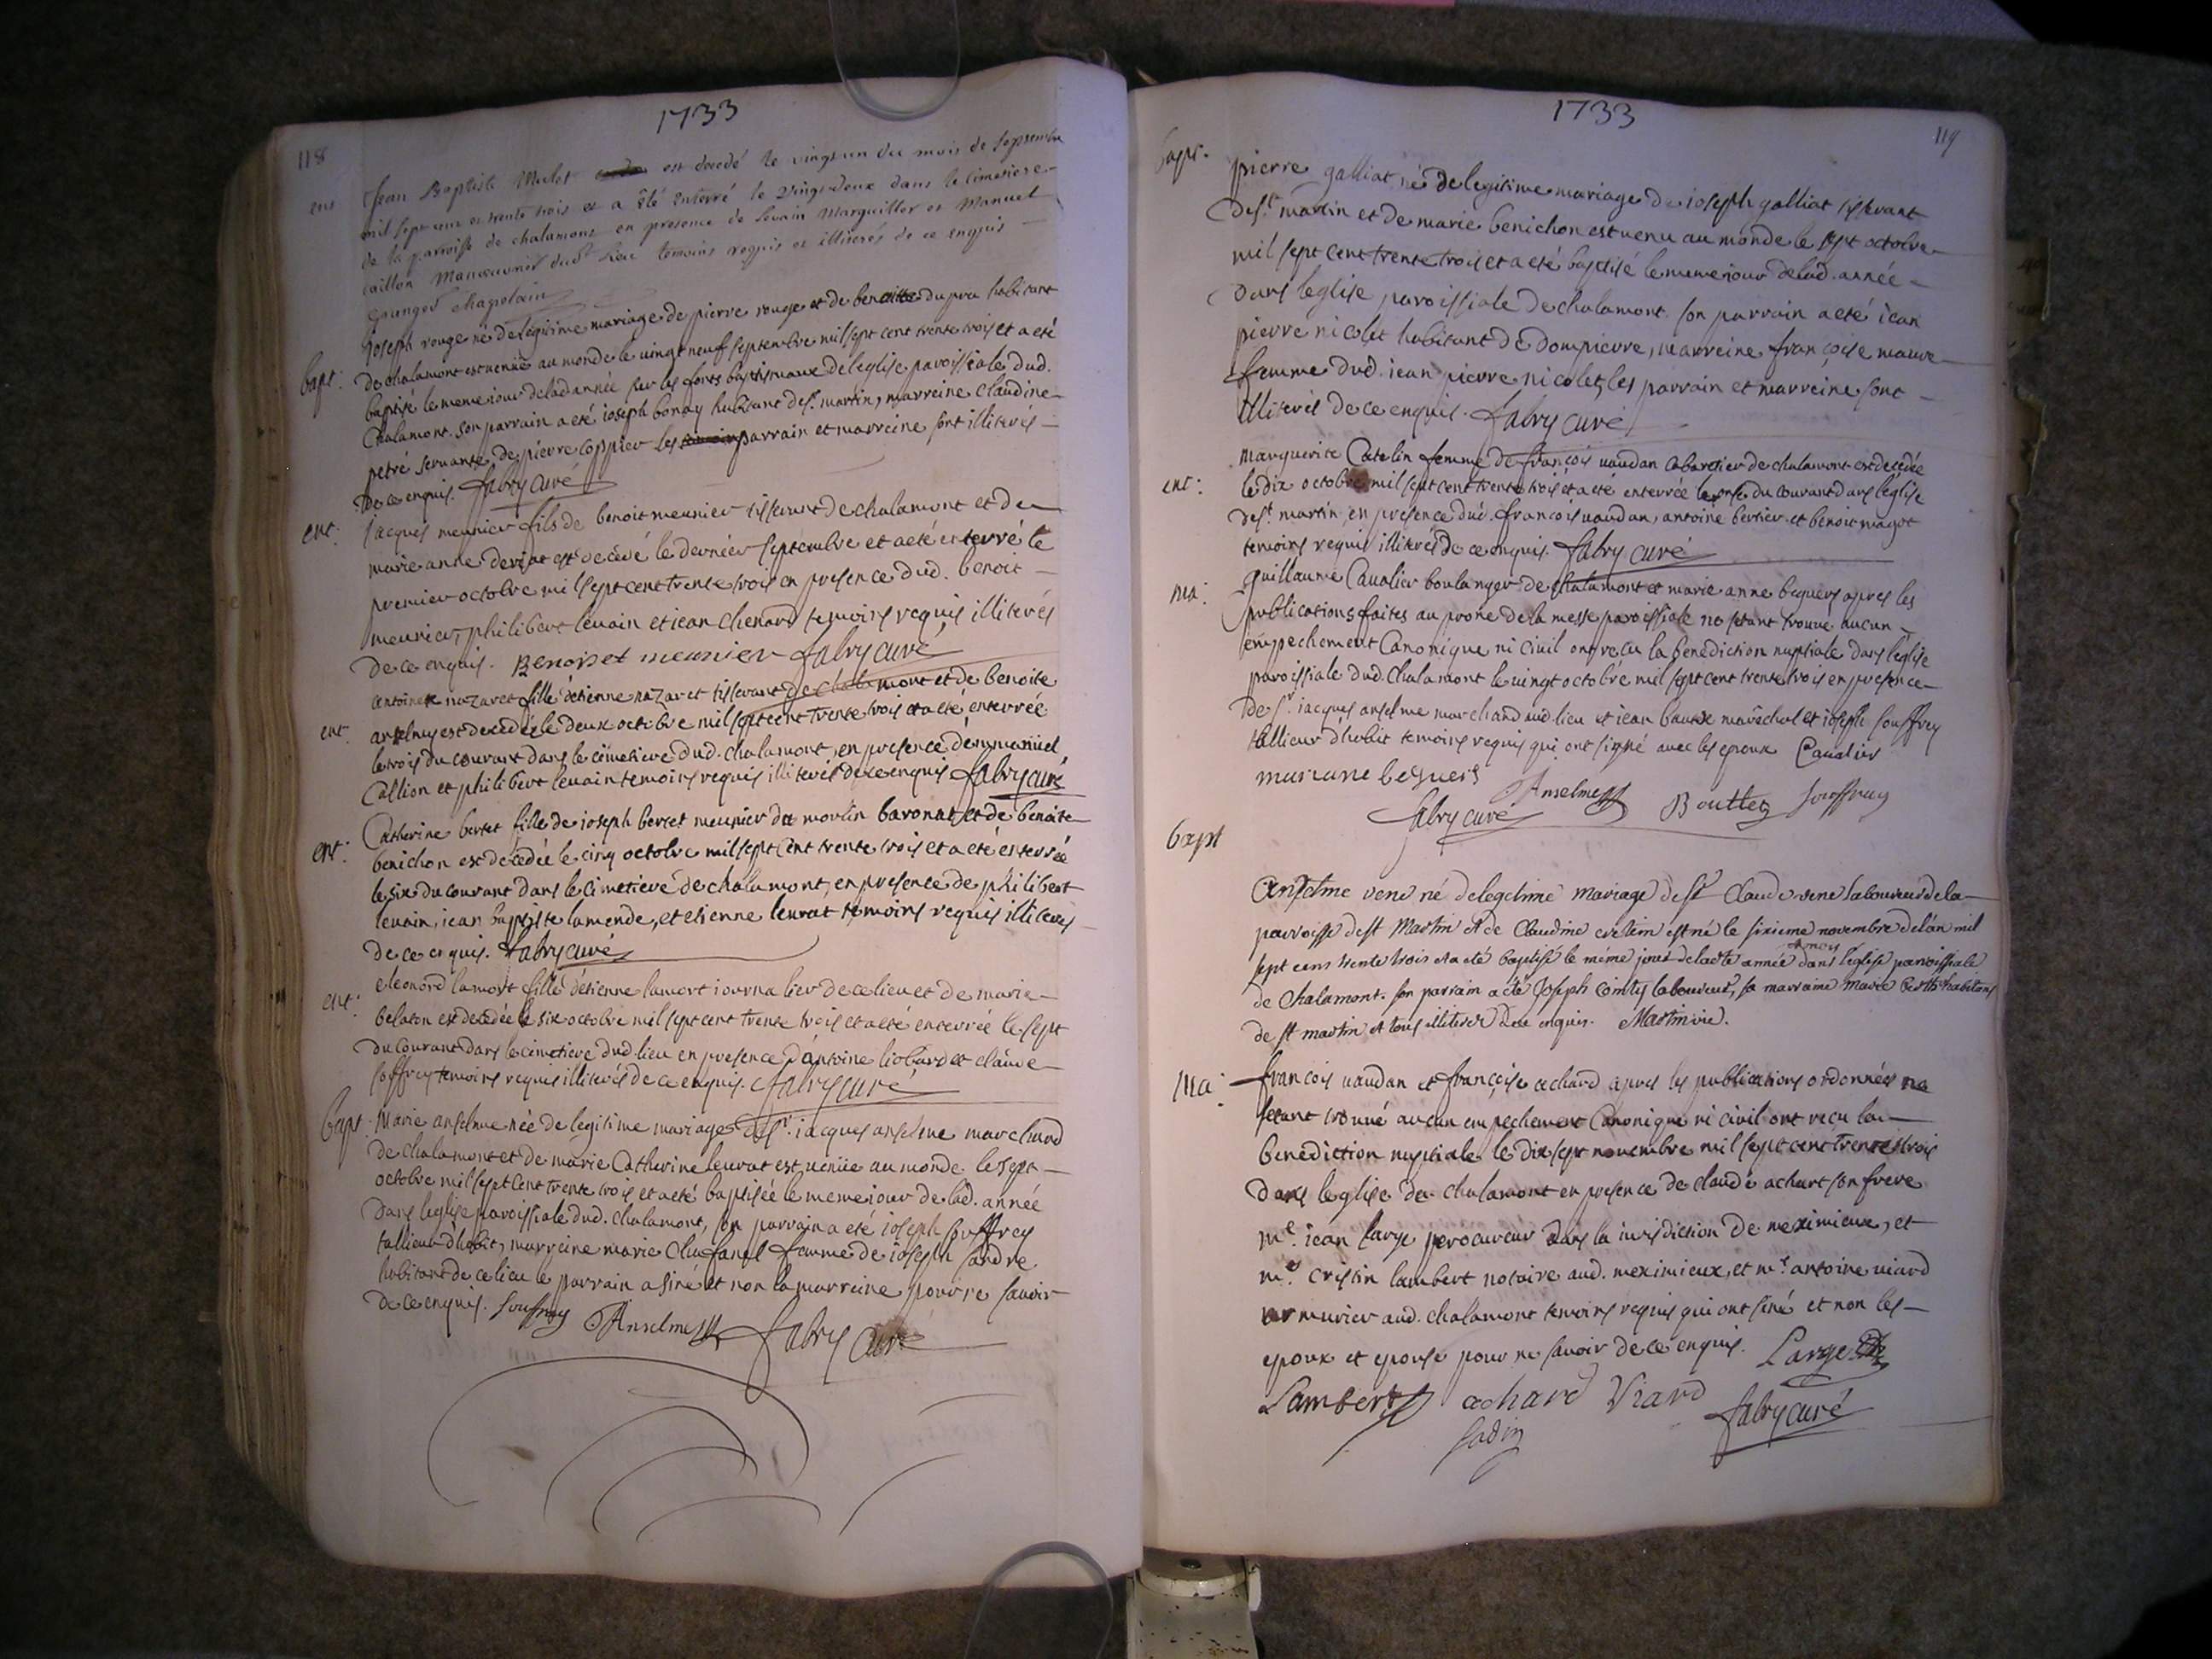 1733
118
ent Jean Baptiste Mulot est decedé le vingt un du mois de septembre
mil sept cent et trente trois et a été enterré le vingt deux dans le cimetiere
de la parroisse de chalamont en presence de Levain Marguiller et Manuel
caillon Manoeuvrier dud.t Lieu temoins requis et illiterés de ce enquis
chapelain
bapt: joseph rouge né de legitime mariage de pierre rouge et de benoitte dupra habitant
de chalamont est venuë au monde le vingt neuf septembre mil sept cent trente trois et a eté
baptisé le meme iour de lad. année sur les fonts baptismaux de leglise paroissiale dud.
Chalamont. son parrain a eté ioseph bonay habitant de s.t martin, marreine Claudine
petré servante de pierre coppier les parrain et marreine sont illiterés
de ce enquis. fabry curé
ent: jacques meunier fils de benoit meunier tisserant de chalamont et de
marie anne est decedé le dernier septembre et a eté enterré le
premier octobre mil sept cent trente trois en presence dud. benoit
meunier, philibert levain et iean chenard temoins requis illiterés
de ce enquis. Benoist meunier fabry curé
ent: antoinete nazaret fille d'etienne nazaret tisserant de chalamont et de benoite
anselmes est decedée le deux octobre mil sept cent trente trois et a eté enterrée
le trois du courant dans le cimetiere dud. chalamont, en presence d'emmanuel
Callion et philibert levain temoins requis illiterés de ce enquis fabry curé
ent: Catherine bertet fille de ioseph bertet meunier du moulin baronat et de benoite
benichon est decedée le cinq octobre mil sept cent trente trois et a eté enterrée
le six du courant dans le cimetiere de chalamont, en presence de philibert
levain, iean baptiste lamende, et etienne leurat temoins requis illiterés
de ce enquis. fabry curé
ent: eleonord lamort fille d'etienne lamort iournalier de ce lieu et de marie
belaton est decedée le six octobre mil sept cent trente trois et a eté enterrée le sept
du courant dans le cimetiere dud. lieu en presence d'antoine liobard et claude
soffrey temoins requis illiterés de ce enquis. fabry curé
bapt: Marie anselme née de legitime mariage de s.r iacques anselme marchand
de chalamont et de marie Catherine leurat est venüe au monde le sept
octobre mil sept cent trente trois et a eté baptisée le meme iour de lad. année
dans leglise paroissiale dud. chalamont, son parrain a eté ioseph souffrey
tallieur d'habit, marreine marie Chafanel femme de ioseph landre
habitant de ce lieu le parrain a siné et non la marreine pour ne savoir
de ce enquis. Souffrey Anselme fabry Curé
1733
119
bapt. pierre galliat né de legitime mariage de ioseph galliat tisserant
de s.t martin et de marie benichon est venu au monde le sept octobre
mil sept cent trente trois et a eté baptisé le meme iour de lad. année
dans leglise paroissiale de chalamont. son parrain a eté iean
pierre nicolet habitant de dompierre, marreine françoise mauve
femme dud. iean pierre nicolet, les parrain et marreine sont
illiterés de ce enquis. fabry curé
ent: marguerite Catelin femme de françois vaudan cabaretier de chalamont est decedée
le dix octobre mil sept cent trente trois et a eté enterrée le onse du courant dans leglise
de s.t martin, en presence dud. françois vaudan, antoine bertier et benoit magot
temoins requis illiterés de ce enquis. fabry curé
ma: guillaume Cavalier boulanger de chalamont et marie anne beguers apres les
publications faites au prone de la messe paroissiale ne s'etant trouvé aucun
empechement Canonique ni Civil ont recu la benediction nuptiale dans leglise
paroissiale dud. Chalamont le vingt octobre mil sept cent trente trois en presence
de s.r iacques anselme marchand dud. lieu et iean marechal et ioseph souffrey
tallieur d'habit temoins requis qui ont signé avec les epoux Cavalier
marianne beguers Anselme Boullet Souffrey
fabry curé
bapt Anselme vene né de legetime mariage de st Claude vene laboureur de la
parroisse de st Martin et de Claudine est né le sixieme novembre de l'an mil
sept cens trente trois et a eté baptisé le même jour de ladte année
et mois
dans l'eglise parroissiale
de Chalamont. son parrain a été Joseph laboureur, sa marraine Marie habitans
de st martin et tous illiteres de ce enquis. Martin vic.
Ma: françois vaudan et françoise achard apres les publications ordonnées ne
s'etant trouvé aucun empechement Canonique ni civil ont reçu la
benediction nuptiale le dix sept novembre mil sept cent trente trois
dans leglise de chalamont en presence de claude achart son frere
m.e iean large procureur dans la iurisdiction de meximieux, et
m.e cristin lambert notaire aud. meximieux, et m.e antoine viard
armurier aud. chalamont temoins requis qui ont siné et non les
epoux et epouse pour ne savoir de ce enquis. Large
Lambert achard Viard fabry curé